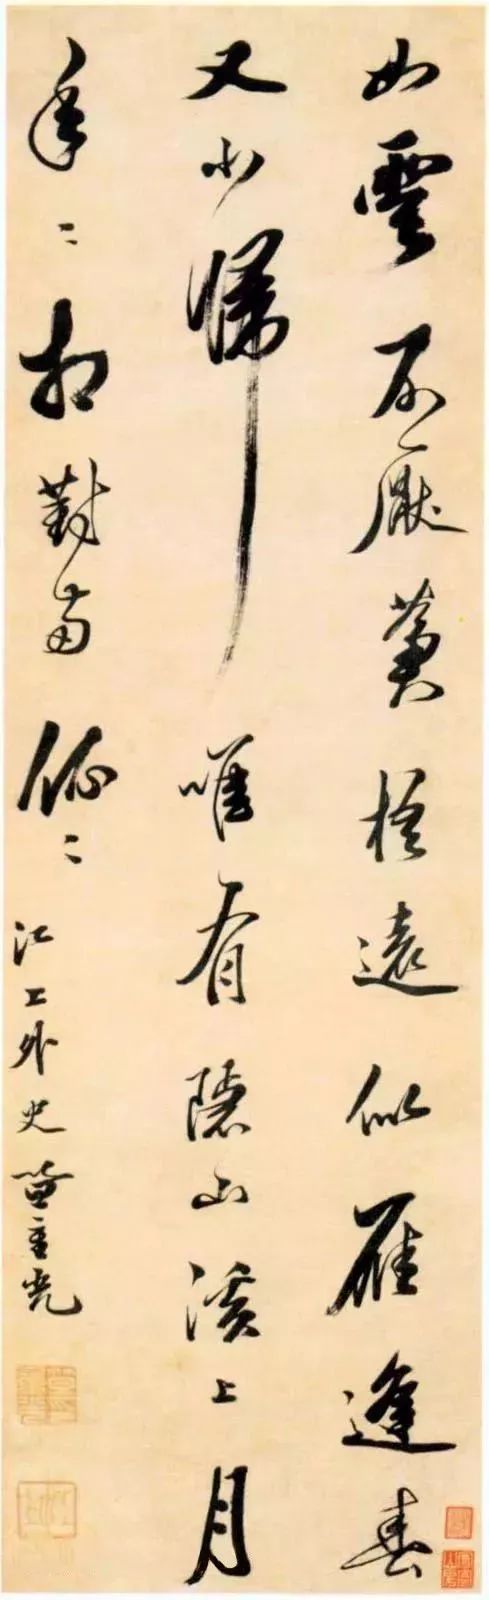 如雲不厭蒼梧遠似雁逢春
又北歸唯有隱山溪上月
年〻相對兩依〻
江上外史笪重光